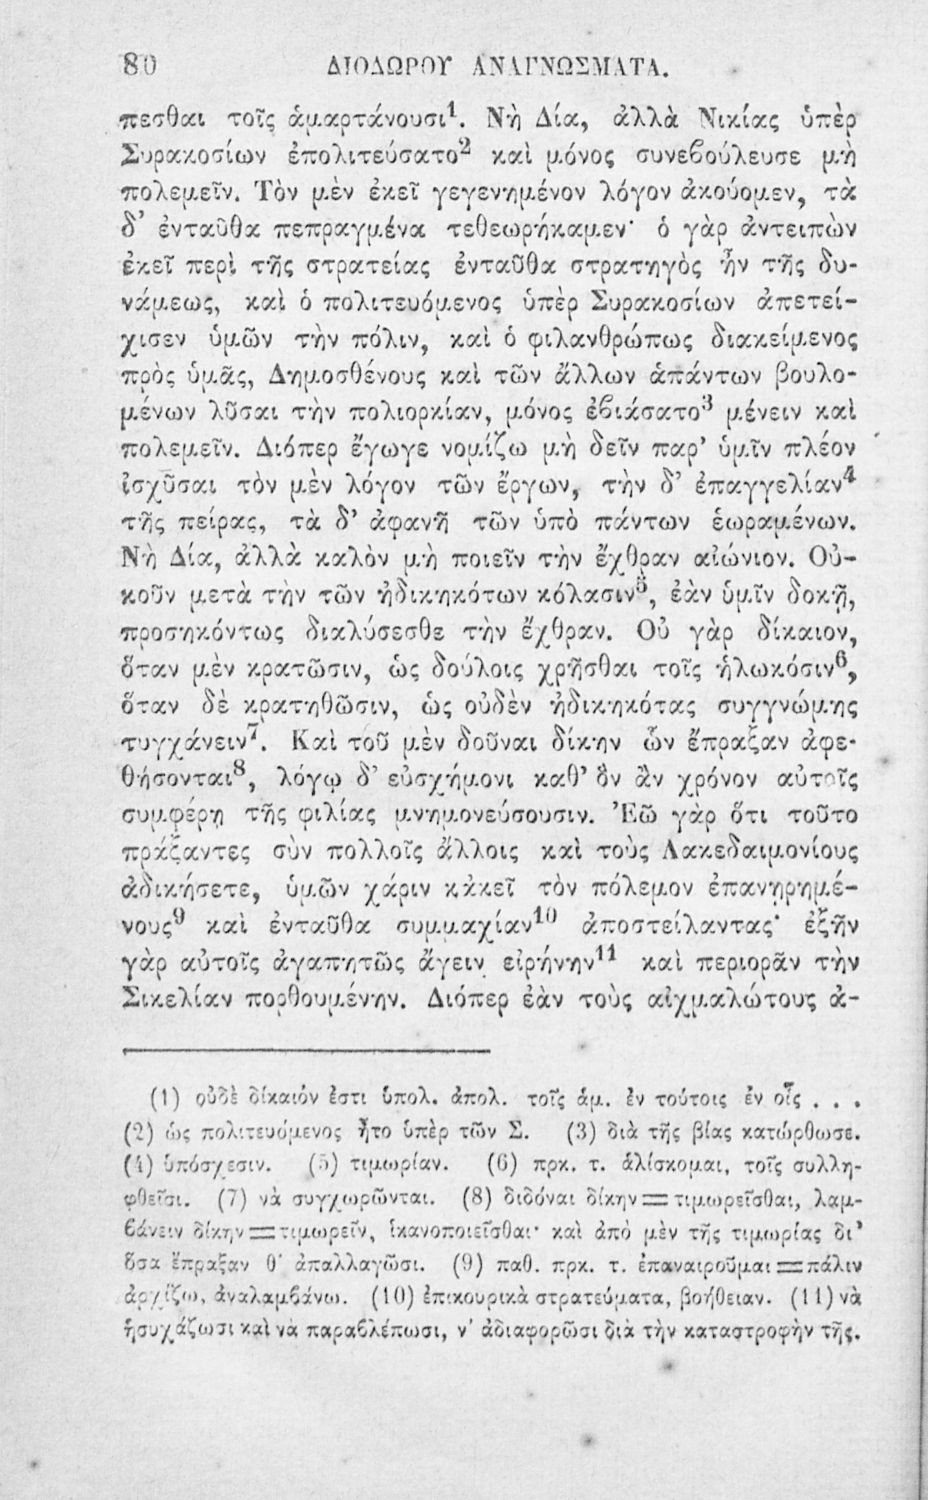 80 ΔΙΟΔΩΡΟΥ ΑΝΑΓΝΩΣΜΑΤΑ.
πεσθαι τοῖς ἁμαρτάνουσι¹. Νὴ Δία, ἀλλὰ Νικίας ὑπὲρ
Συρακοσίων ἐπολιτεύσατο² καὶ μόνος συνεϐούλευσε μὴ
πολεμεῖν. Τὸν μὲν ἐκεῖ γεγενημένον λόγον ἀκούομεν, τὰ
δ’ ἐνταῦθα πεπραγμένα τεθεωρήκαμεν· ὁ γὰρ ἀντειπὼν
ἐκεῖ περὶ τῆς στρατείας ἐνταῦθα στρατηγὸς ἦν τῆς δυ-
νάμεως, καὶ ὁ πολιτευόμενος ὑπὲρ Συρακοσίων ἀπετεί-
χισεν ὑμῶν τὴν πόλιν, καὶ ὁ φιλανθρώπως διακείμενος
πρὸς ὑμᾶς, Δημοσθένους καὶ τῶν ἄλλων ἁπάντων βουλο-
μένων λῦσαι τὴν πολιορκίαν, μόνος ἐϐιάσατο³ μένειν καὶ
πολεμεῖν. Διόπερ ἔγωγε νομίζω μὴ δεῖν παρ’ ὑμῖν πλέον
ἰσχῦσαι τὸν μὲν λόγον τῶν ἔργων, τὴν δ’ ἐπαγγελίαν⁴
τῆς πείρας, τὰ δ’ ἀφανῆ τῶν ὑπὸ πάντων ἑωραμένων.
Νὴ Δία, ἀλλὰ καλὸν μὴ ποιεῖν τὴν ἔχθραν αἰώνιον. Οὐ-
κοῦν μετὰ τὴν τῶν ἠδικηκότων κόλασιν⁵, ἐὰν ὑμῖν δοκῇ,
προσηκόντως διαλύσεσθε τὴν ἔχθραν. Οὐ γὰρ δίκαιον,
ὅταν μὲν κρατῶσιν, ὡς δούλοις χρῆσθαι τοῖς ἡλωκόσιν⁶,
ὅταν δὲ κρατηθῶσιν, ὡς οὐδὲν ἠδικηκότας συγγνώμης
τυγχάνειν⁷. Καὶ τοῦ μὲν δοῦναι δίκην ὧν ἔπραξαν ἀφε-
θήσονται⁸, λόγῳ δ’ εὐσχήμονι καθ’ ὃν ἂν χρόνον αὐτοῖς
συμφέρῃ τῆς φιλίας μνημονεύσουσιν. Ἐῶ γὰρ ὅτι τοῦτο
πράξαντες σὺν πολλοῖς ἄλλοις καὶ τοὺς Λακεδαιμονίους
ἀδικήσετε, ὑμῶν χάριν κἀκεῖ τὸν πόλεμον ἐπανῃρημέ-
νους⁹ καὶ ἐνταῦθα συμμαχίαν¹⁰ ἀποστείλαντας· ἐξῆν
γὰρ αὐτοῖς ἀγαπητῶς ἄγειν εἰρήνην¹¹ καὶ περιορᾶν τὴν
Σικελίαν πορθουμένην. Διόπερ ἐὰν τοὺς αἰχμαλώτους ἀ-
(1) οὐδὲ δίκαιόν ἐστι ὑπολ. ἀπολ. τοῖς ἁμ. ἐν τούτοις ἐν οἷς . . .
(2) ὡς πολιτευόμενος ἦτο ὑπὲρ τῶν Σ. (3) διὰ τῆς βίας κατώρθωσε.
(4) ὑπόσχεσιν. (5) τιμωρίαν. (6) πρκ. τ. ἁλίσκομαι, τοῖς συλλη-
φθεῖσι. (7) νὰ συγχωρῶνται. (8) διδόναι δίκην = τιμωρεῖσθαι, λαμ-
ϐάνειν δίκην = τιμωρεῖν, ἱκανοποιεῖσθαι· καὶ ἀπὸ μὲν τῆς τιμωρίας δι’
ὅσα ἔπραξαν θ’ ἀπαλλαγῶσι. (9) παθ. πρκ. τ. ἐπαναιροῦμαι = πάλιν
ἀρχίζω, ἀναλαμϐάνω. (10) ἐπικουρικὰ στρατεύματα, βοήθειαν. (11) νὰ
ἡσυχάζωσι καὶ νὰ παραϐλέπωσι, ν’ ἀδιαφορῶσι διὰ τὴν καταστροφὴν τῆς.